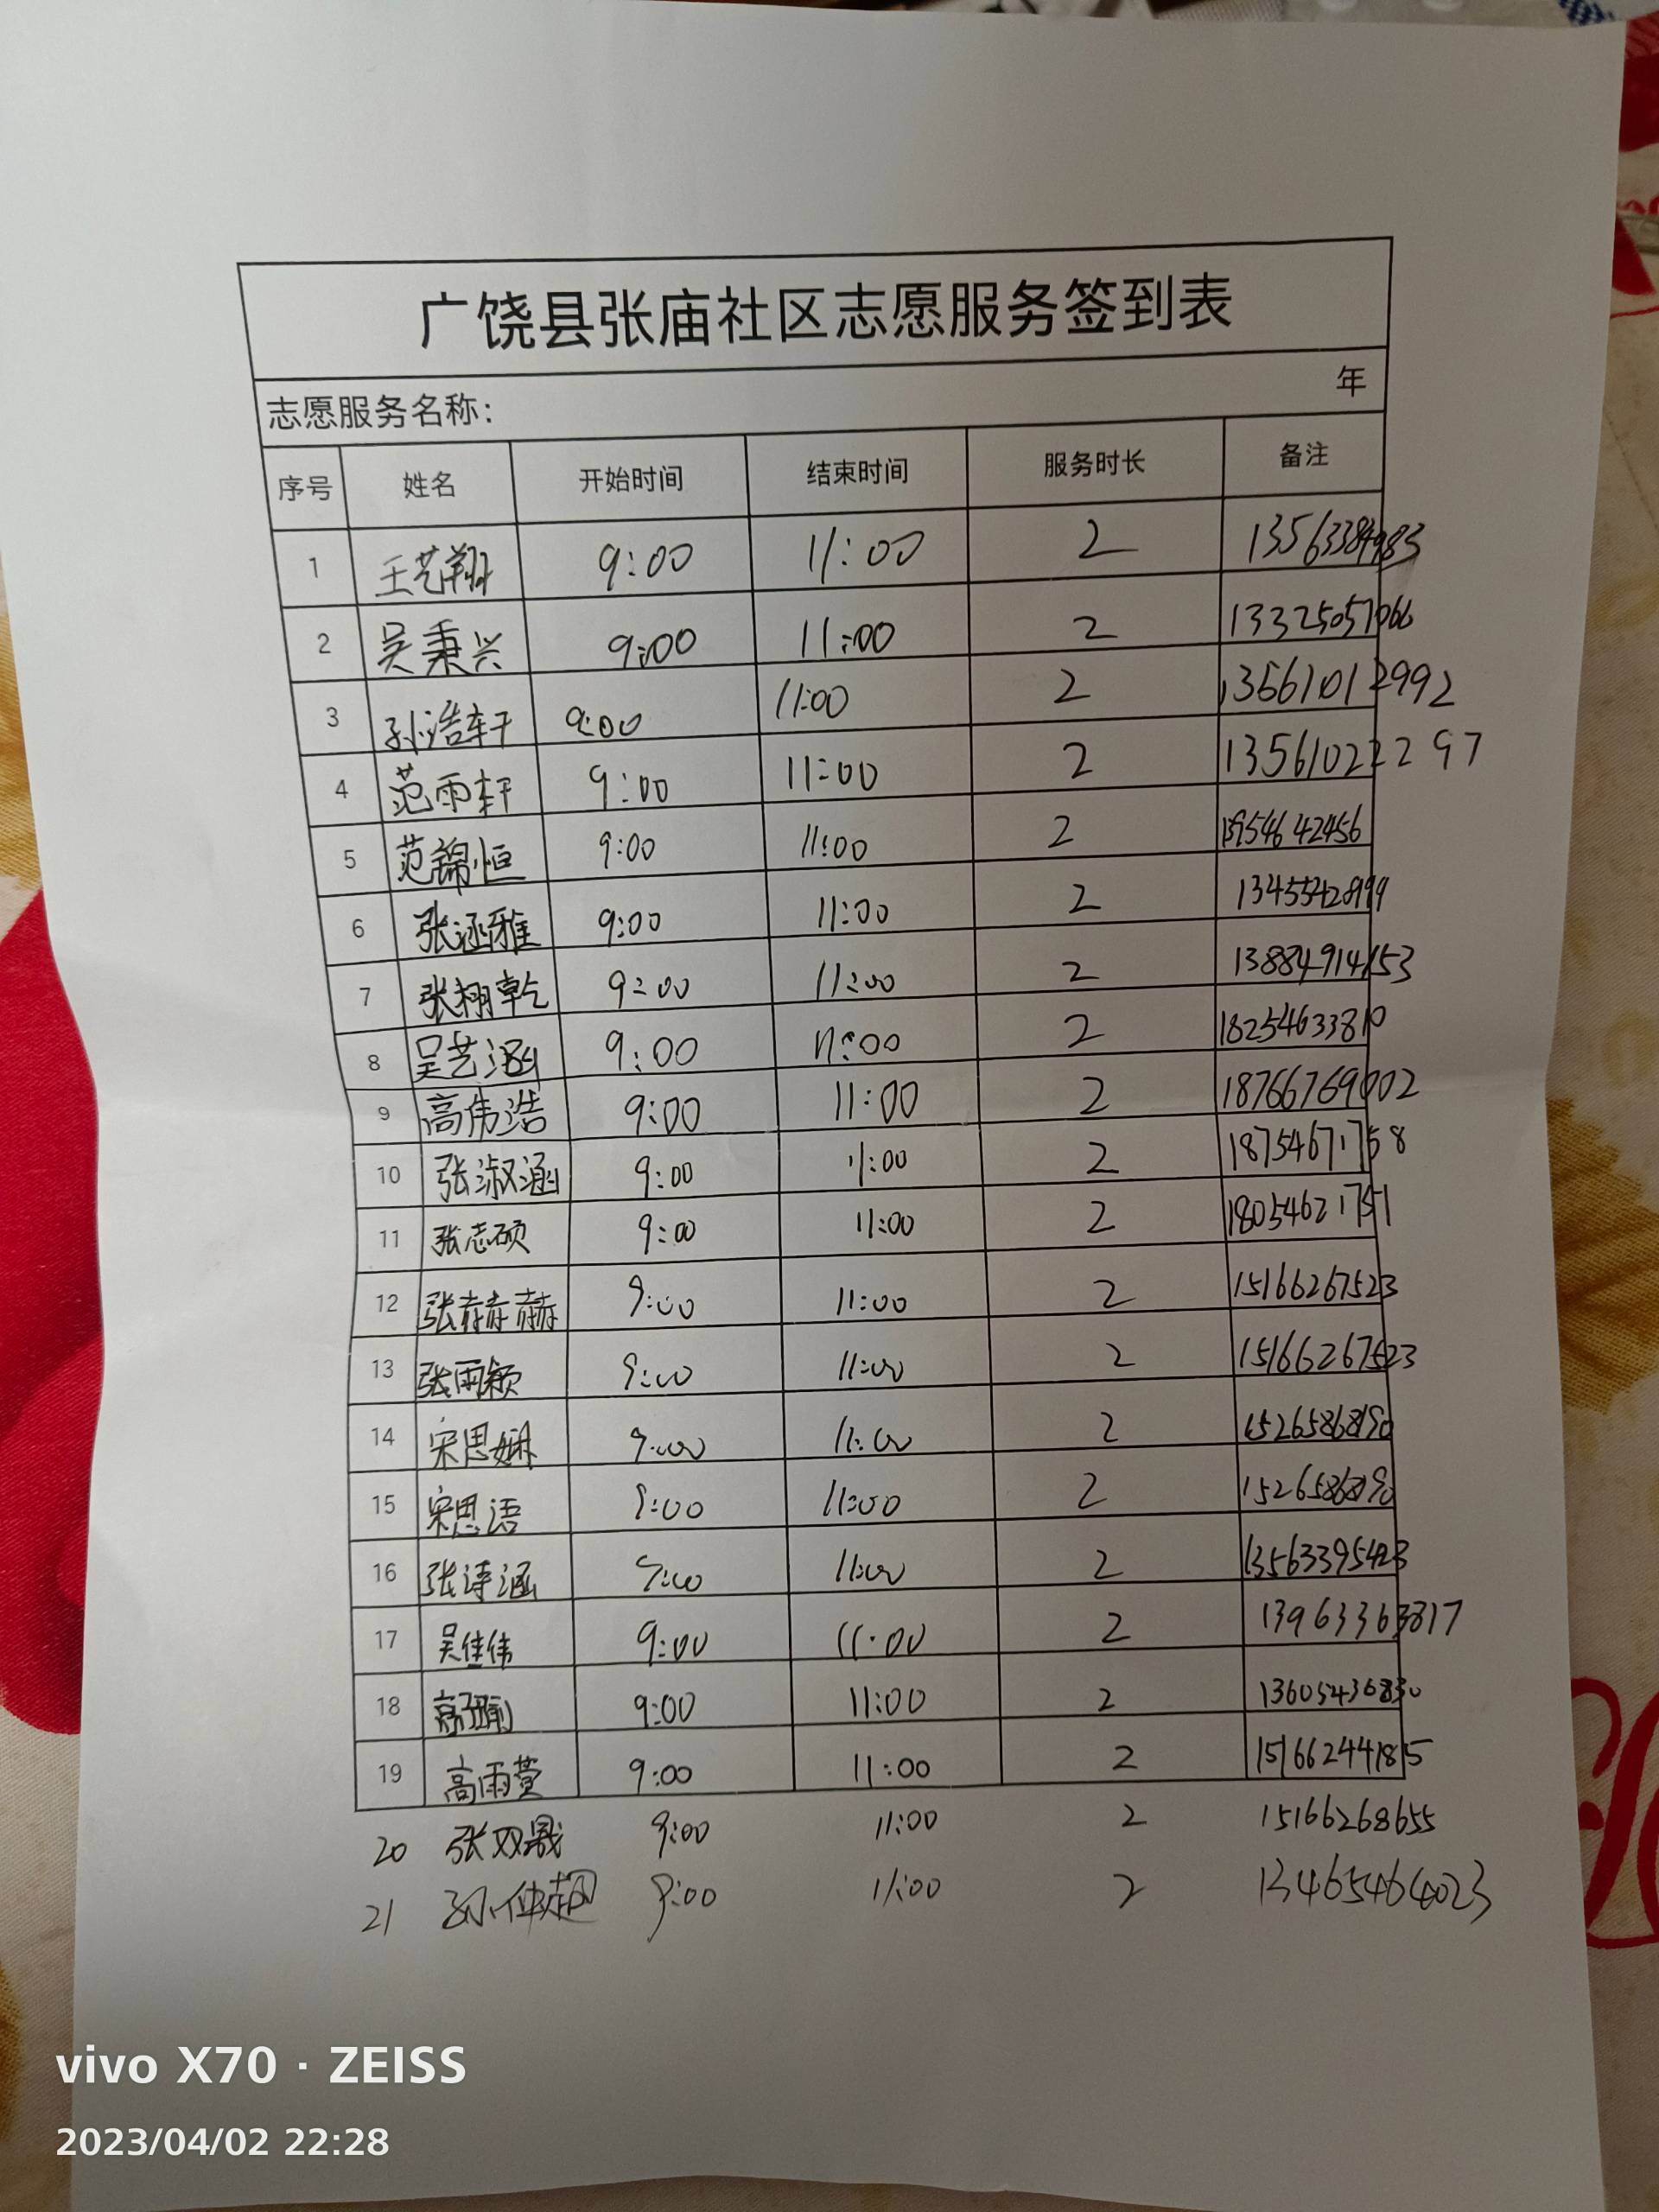 广饶县张庙社区志愿服务签到表
年
志愿服务名称：
序号 姓名 开始时间 结束时间 服务时长 备注
1 王艺翔 9:00 11:00 2
2 吴秉兴 9:00 11:00 2 13325057066
3 孙浩轩 9:00 11:00 2
4 范雨轩 9:00 11:00 2 13561022297
5 范锦恒 9:00 11:00 2 13954642456
6 张涵雅 9:00 11:00 2
7 张栩乾 9:00 11:00 2 13884914153
8 吴艺涵 9:00 11:00 2 18254633810
9 高伟浩 9:00 11:00 2 18766769002
10 张淑涵 9:00 11:00 2 18754671758
11 张志硕 9:00 11:00 2 18054621751
12 张赫赫 9:00 11:00 2 15166267523
13 张雨颖 9:00 11:00 2 15166267523
14 宋思娴 9:00 11:00 2 15265868190
15 宋思语 9:00 11:00 2 15265868190
16 张诗涵 9:00 11:00 2 13563395423
17 吴佳伟 9:00 11:00 2 13963363817
18 9:00 11:00 2 13605436830
19 高雨萱 9:00 11:00 2 15166244185
20 张双晟 9:00 11:00 2 15166268655
21 孙仲超 9:00 11:00 2 13465464023
vivo X70 · ZEISS
2023/04/02 22:28